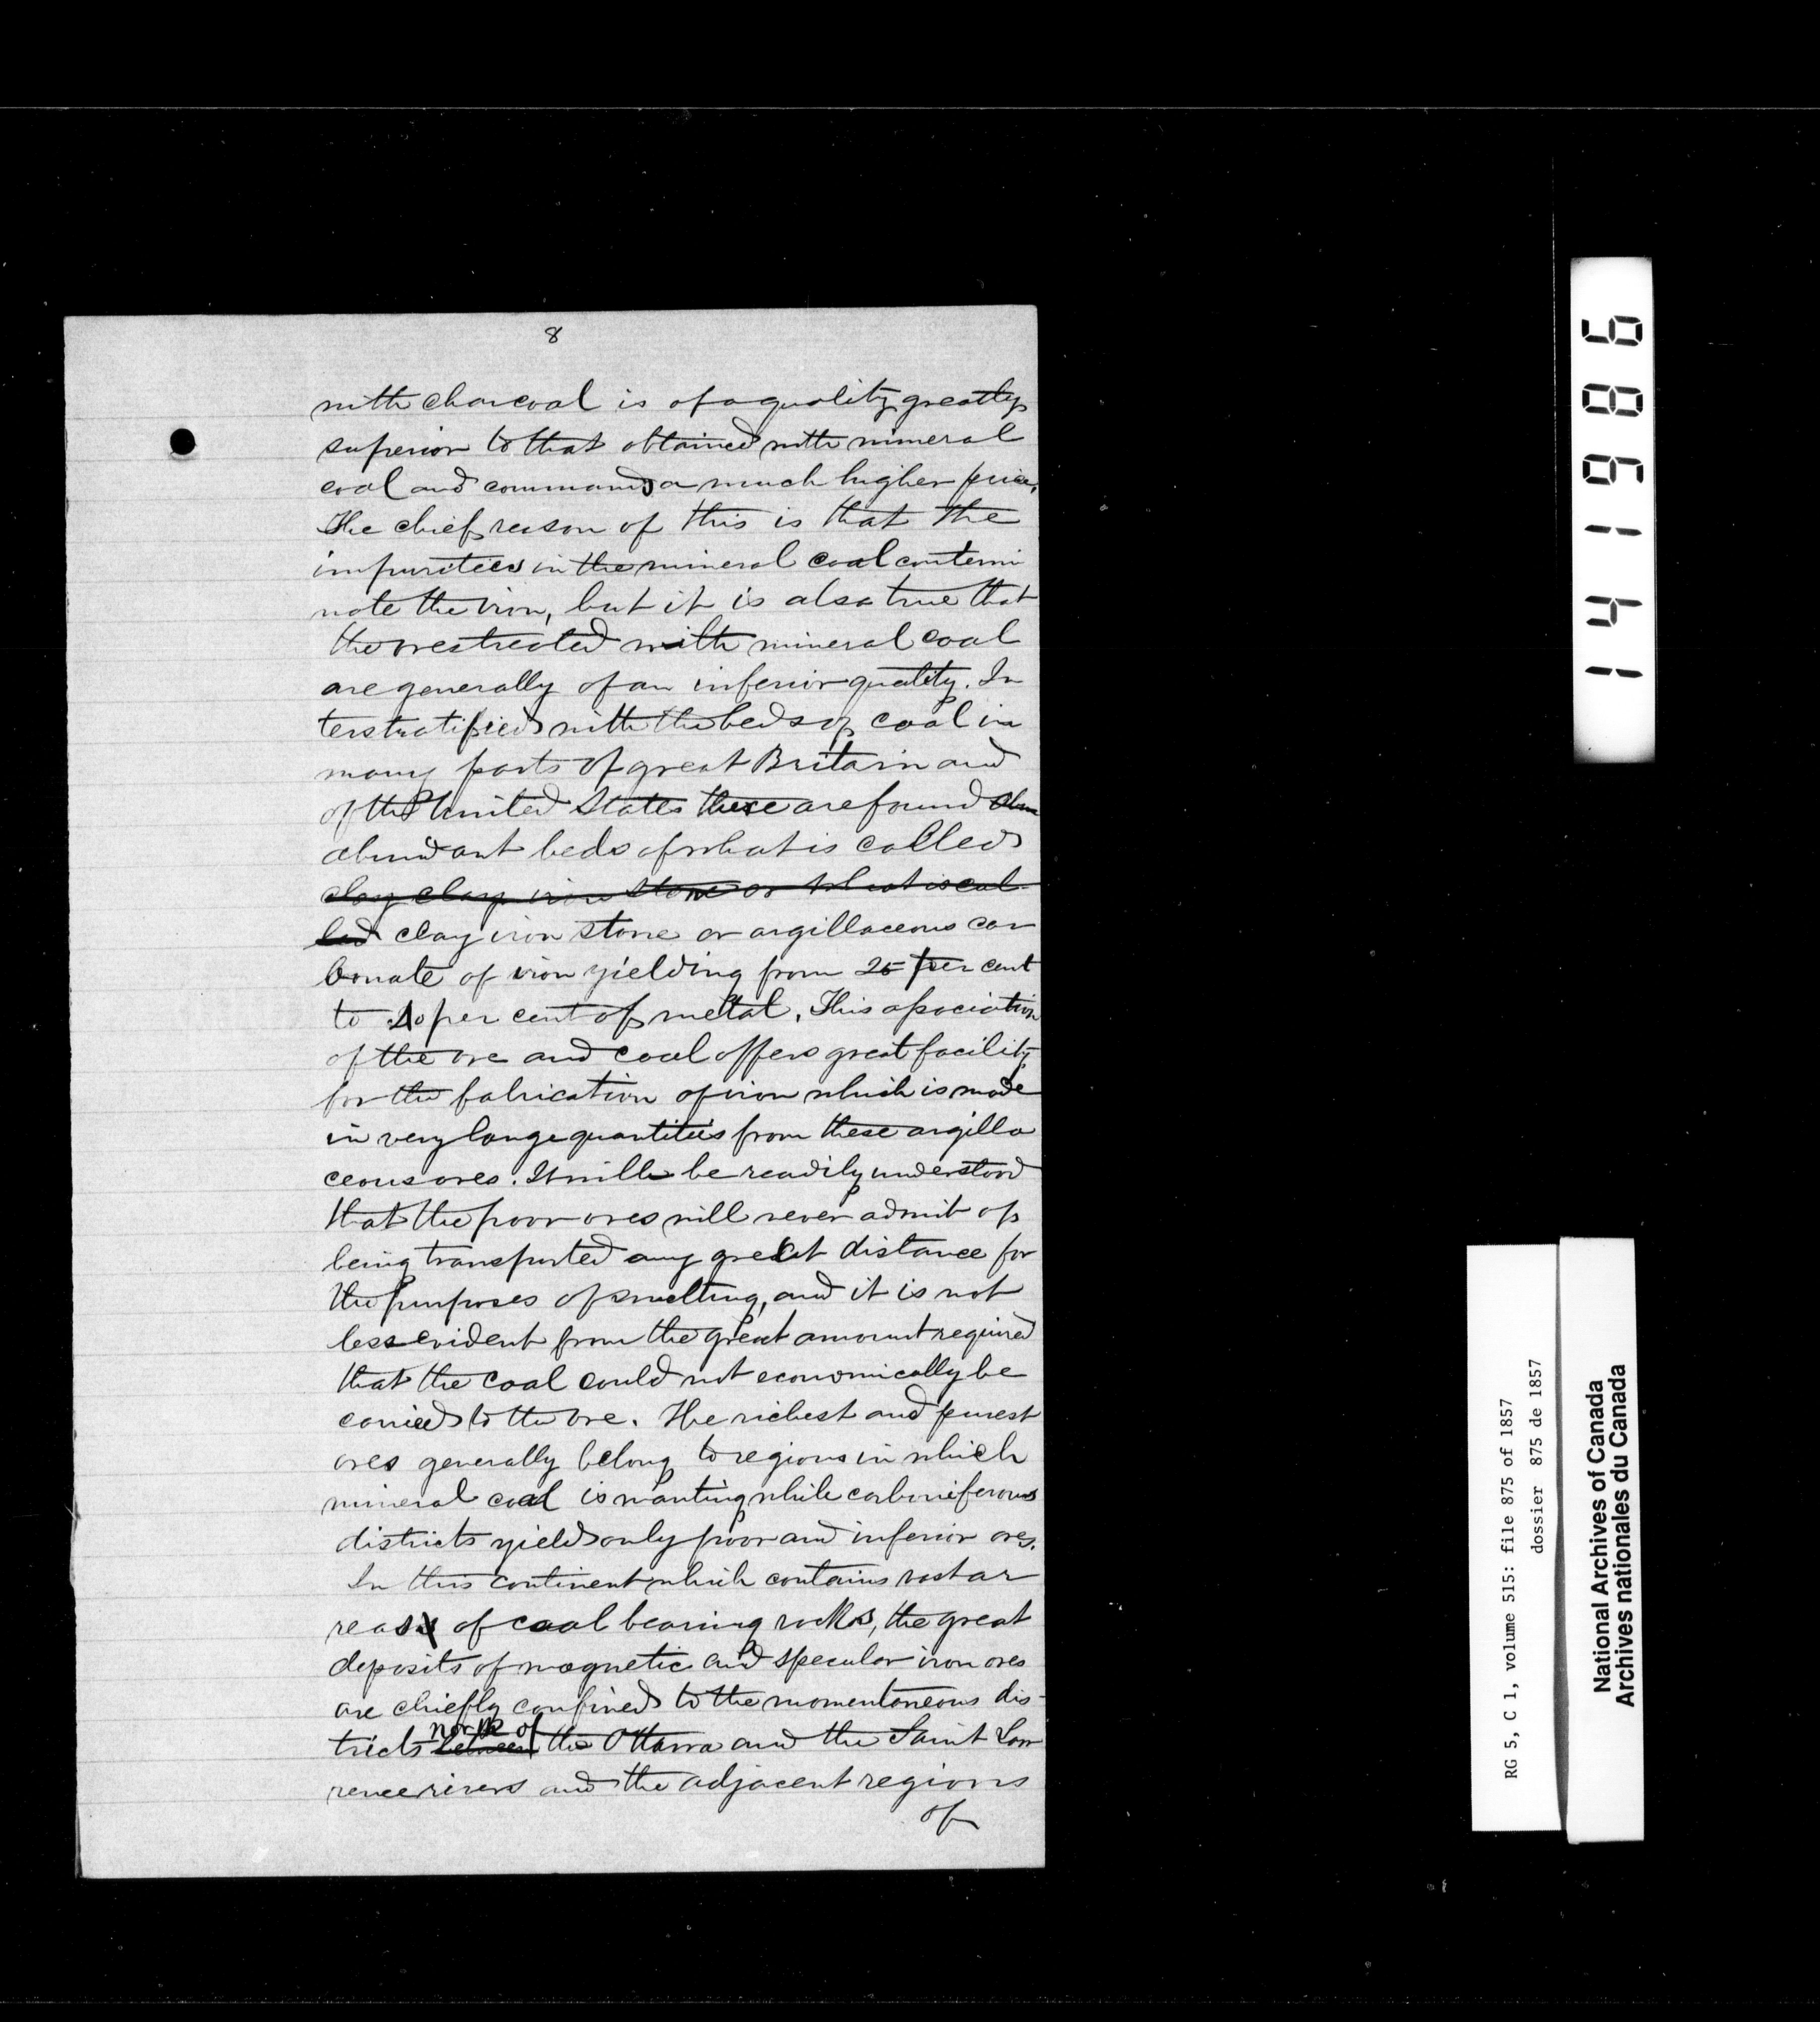 8
with charcoal is of a quality greatly
superior to that obtained with mineral
coal and commands a much higher price,
The chief reason of this is that the
impurities in the mineral coal contami
nate the iron, but it is also true that
the ores treated with mineral coal
are generally of an inferior quality. In
terstratified with the beds of coal in
many parts of great Britain and
of the United States there are found abun
abundant beds of what is called
clay clay iron stone or what is cal
led clay iron stone or argillaceous car
bonate of iron yielding from 25 per cent
to 40 per cent of metal. This association
of the ore and coal offers great facility
for the fabrication of iron which is made
in very large quantities from these argilla
ceous ores. It will be readily understood
that the poor ores will never admit of
being transported any great distance for
the purposes of smelting, and it is not
less evident from the great amount required
that the coal could not economically be
carried to the ore. The richest and purest
ores generally belong to regions in which
mineral coal is wanting while carboniferous
districts yield only poor and inferior ores.
In this continent which contains vast ar
reas of coal bearing rocks, the great
deposits of magnetic and specular iron ores
are chiefly confined to the momentaneous dis-
north of
tricts between the Ottawa and the Saint Law
rence rivers and the adjacent regions
of
141986
RG 5, C 1, volume 515: file 875 of 1857
dossier 875 de 1857
National Archives of Canada
Archives nationales du Canada